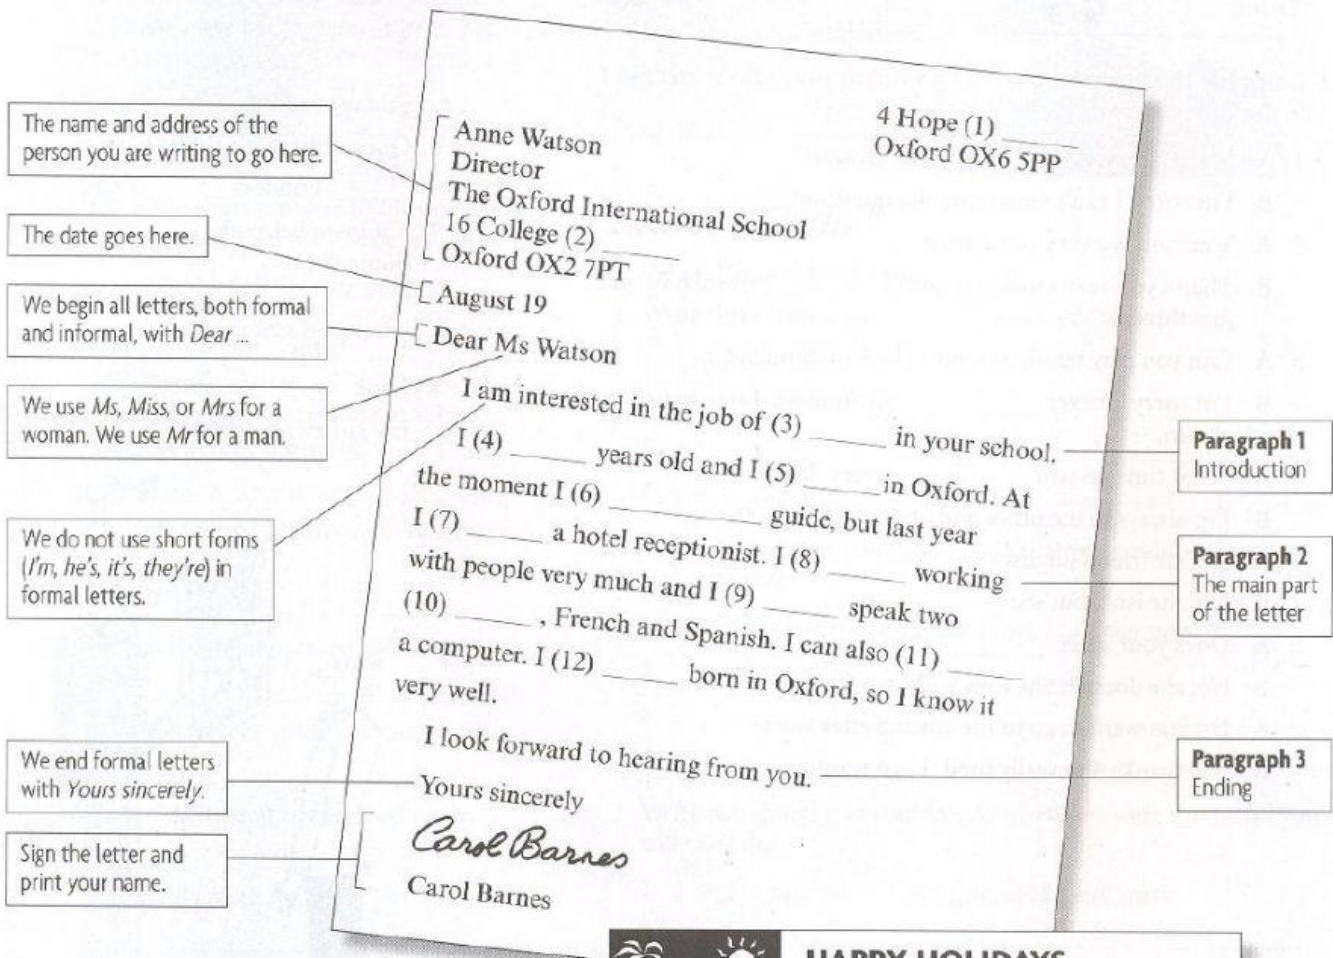 The name and address of the
person you are writing to go here.
The date goes here.
We begin all letters, both formal
and informal, with Dear ...
We use Ms, Miss, or Mrs for a
woman. We use Mr for a man.
We do not use short forms
(I'm, he's, it's, they're) in
formal letters.
We end formal letters
with Yours sincerely.
Sign the letter and
print your name.
4 Hope (1) ______
Oxford OX6 5PP
Anne Watson
Director
The Oxford International School
16 College (2) ______
Oxford OX2 7PT
August 19
Dear Ms Watson
I am interested in the job of (3) ______ in your school.
I (4) ______ years old and I (5) ______ in Oxford. At
the moment I (6) ______ guide, but last year
I (7) ______ a hotel receptionist. I (8) ______ working
with people very much and I (9) ______ speak two
(10) ______ , French and Spanish. I can also (11) ______
a computer. I (12) ______ born in Oxford, so I know it
very well.
I look forward to hearing from you.
Yours sincerely
Carol Barnes
Carol Barnes
Paragraph 1
Introduction
Paragraph 2
The main part
of the letter
Paragraph 3
Ending
HAPPY HOLIDAYS